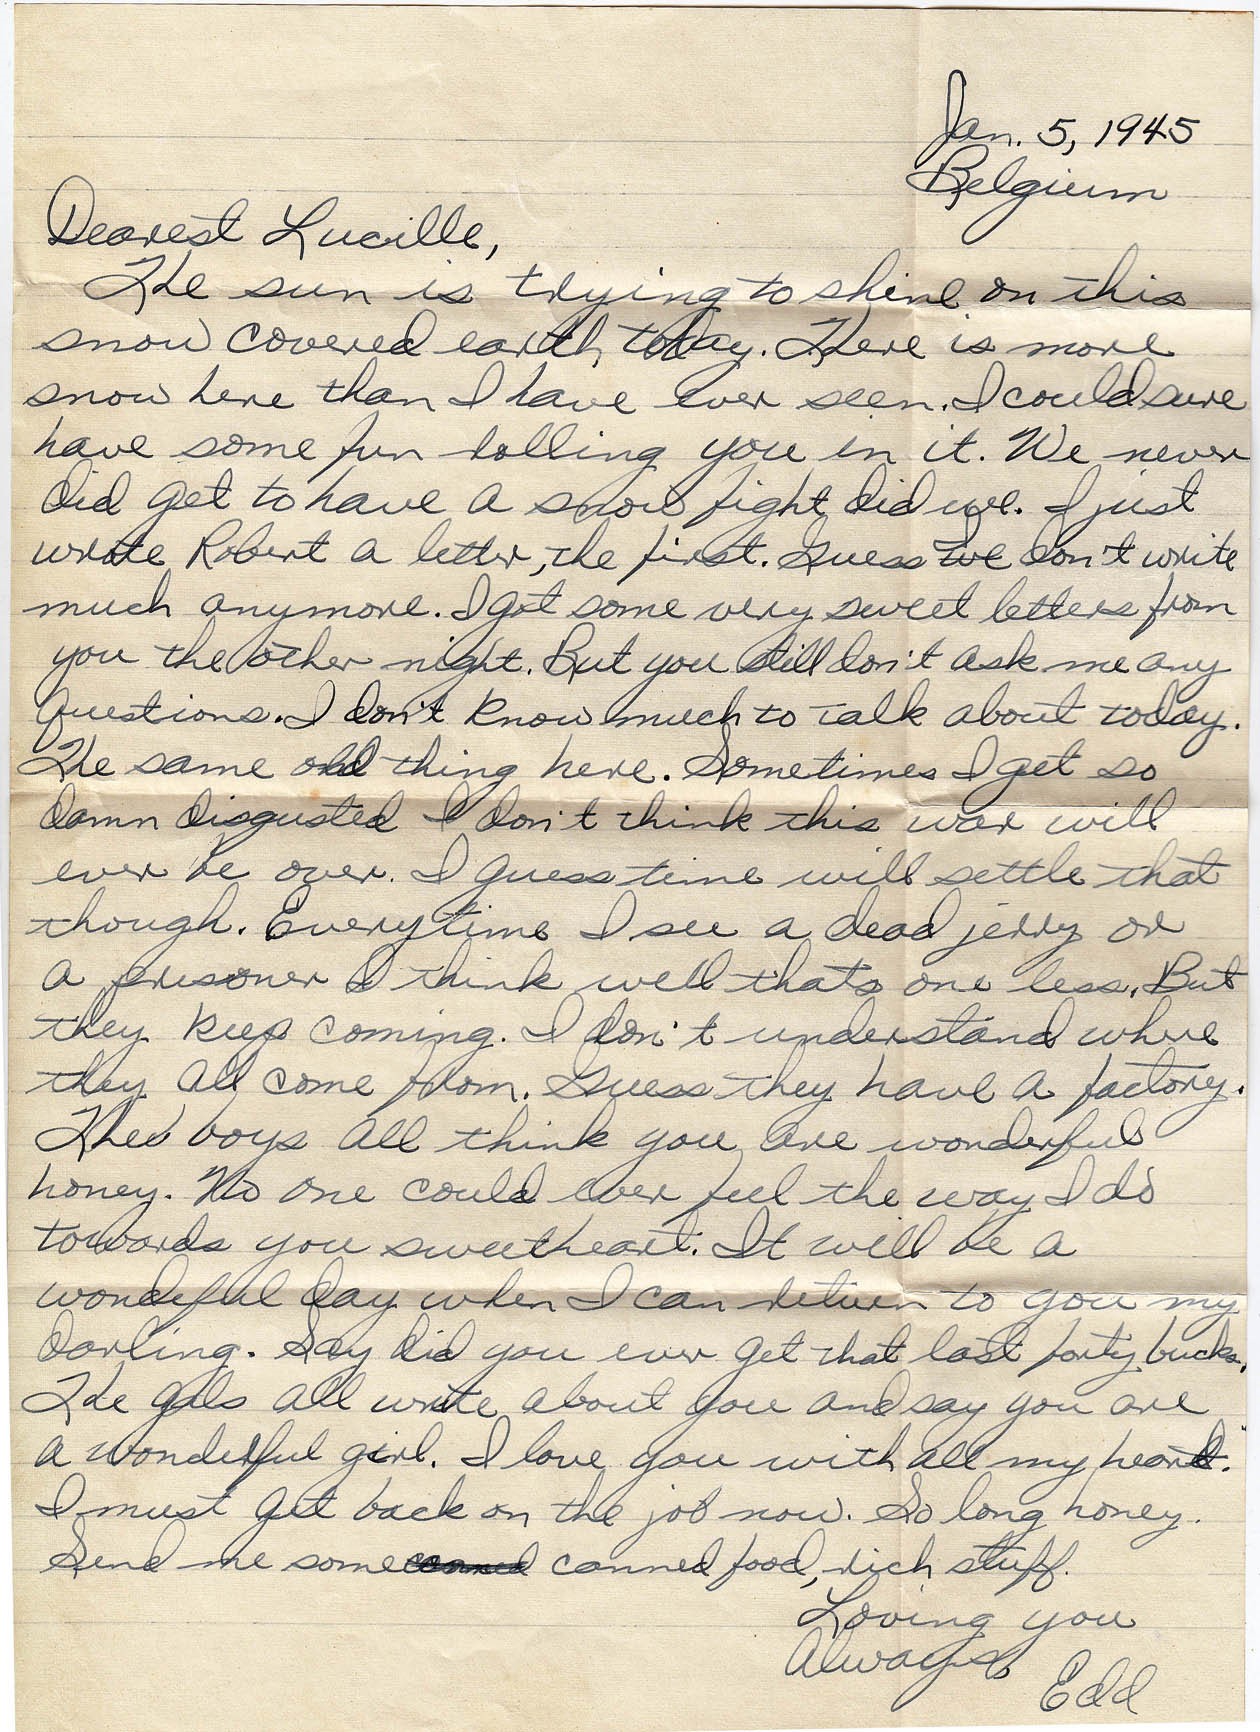 Jan. 5, 1945
Belgium
Dearest Lucille,
The sun is trying to shine on this
snow covered earth, today. There is more
snow here than I have ever seen. I could sure
have some fun rolling you in it. We never
did get to have a snow fight did we. I just
wrote Robert a letter, the first. Guess we don't write
much anymore. I got some very sweet letters from
you the other night. But you still don't ask me any
questions. I don't know much to talk about today.
The same old thing here. Sometimes I get so
damn disgusted I don't think this war will
ever be over. I guess time will settle that
though. Everytime I see a dead jerry or
a prisoner I think well thats one less. But
they keep coming. I don't understand where
they all come from. Guess they have a factory.
The boys all think you are wonderful
honey. No one could ever feel the way I do
towards you sweetheart. It will be a
wonderful day when I can return to you my
darling. Say did you ever get that last forty bucks.
The gals all write about you and say you are
a wonderful girl. I love you with all my heart.
I must get back on the job now. So long honey.
Send me some canned food, rich stuff.
Loving you
Always,
Edd